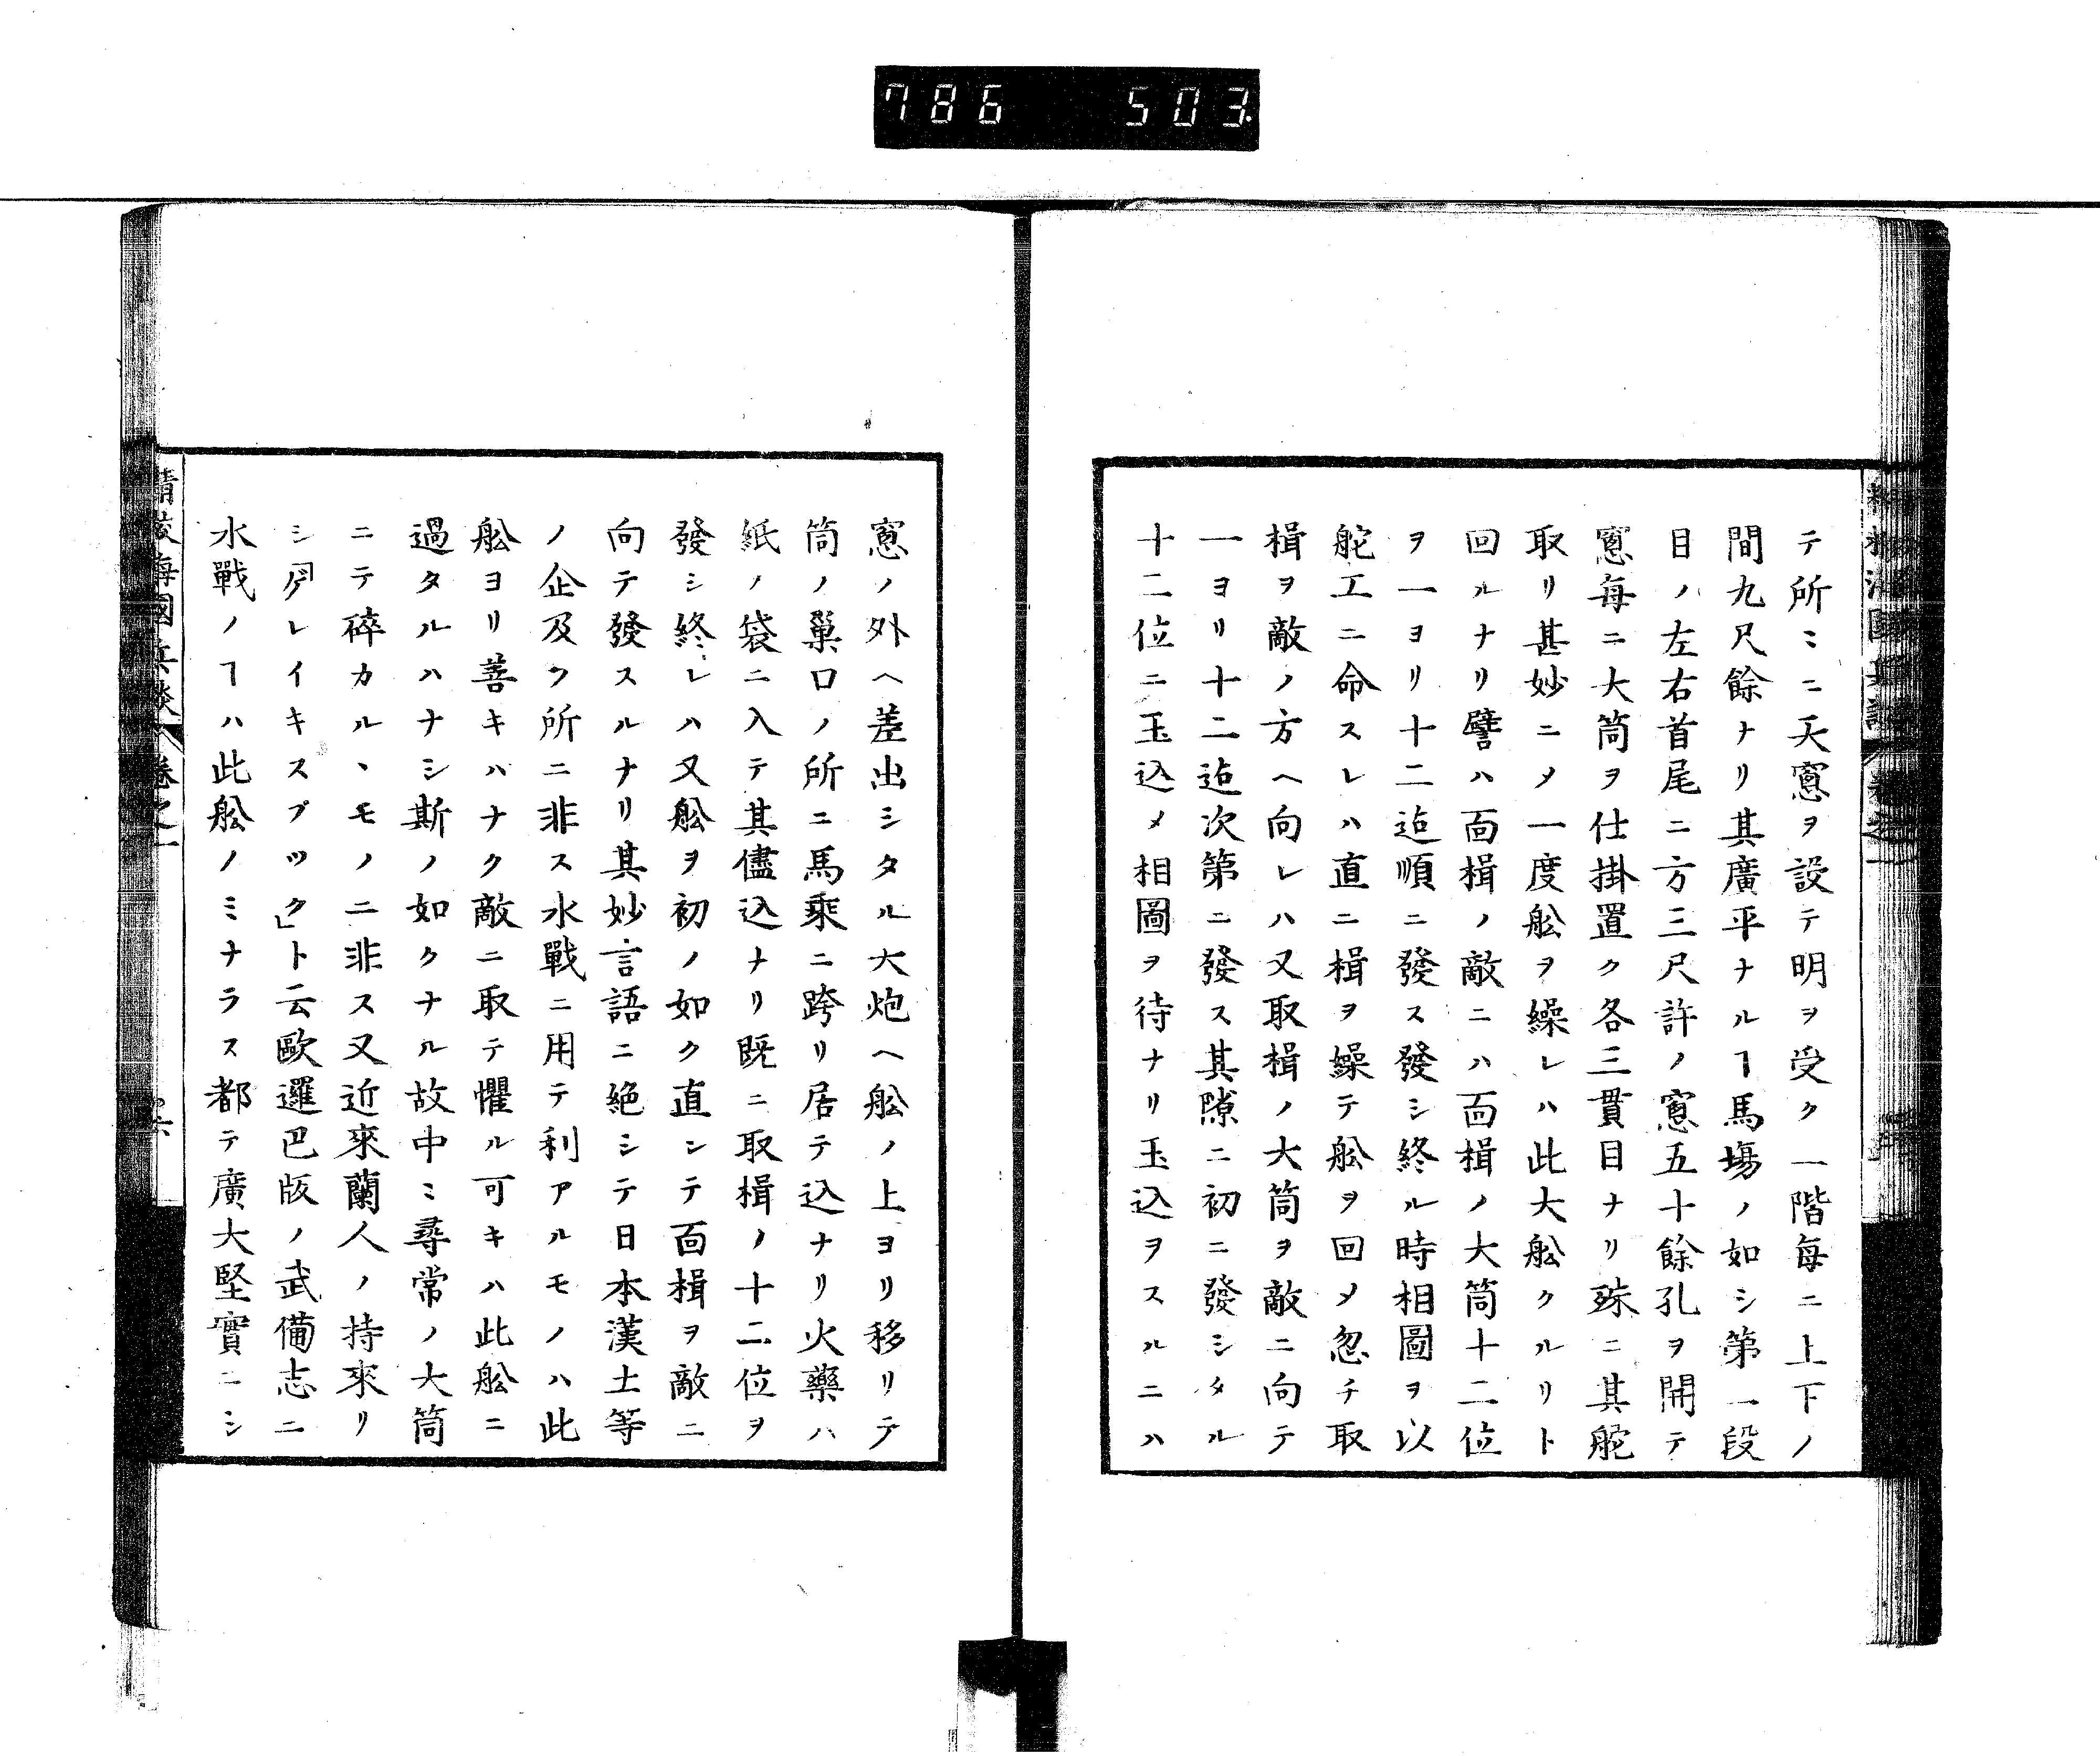 786 503
テ所ミニ天窻ヲ設テ明ヲ受ク一階毎ニ上下ノ
間九尺餘ナリ其廣平ナルヿ馬塲ノ如シ第一段
目ノ左右首尾ニ方三尺許ノ窻五十餘孔ヲ開テ
窻毎ニ大筒ヲ仕掛置ク各三貫目ナリ殊ニ其舵
取リ甚妙ニメ一度舩ヲ繰レハ此大舩クルリト
回ルナリ譬ハ面楫ノ敵ニハ面楫ノ大筒十二位
ヲ一ヨリ十二迠順ニ發ス發シ終ル時相圖ヲ以
舵工ニ命スレハ直ニ楫ヲ繰テ舩ヲ回メ忽チ取
楫ヲ敵ノ方ヘ向レハ又取楫ノ大筒ヲ敵ニ向テ
一ヨリ十二迠次第ニ發ス其隙ニ初ニ發シタル
十二位ニ玉込メ相圖ヲ待ナリ玉込ヲスルニハ
窻ノ外ヘ差出シタル大炮ヘ舩ノ上ヨリ移リテ
筒ノ巢口ノ所ニ馬乘ニ跨リ居テ込ナリ火藥ハ
紙ノ袋ニ入テ其儘込ナリ既ニ取楫ノ十二位ヲ
發シ終レハ又舩ヲ初ノ如ク直ンテ面楫ヲ敵ニ
向テ發スルナリ其妙言語ニ絶シテ日本漢土等
ノ企及フ所ニ非ス水戰ニ用テ利アルモノハ此
舩ヨリ善キハナク敵ニ取テ懼ル可キハ此舩ニ
過タルハナシ斯ノ如クナル故中ミ尋常ノ大筒
ニテ碎カル丶モノニ非ス又近來蘭人ノ持來リ
シレイキスブック」ト云歐邏巴版ノ武備志ニ
水戰ノヿハ此舩ノミナラス都テ廣大堅實ニシ
精校海國兵談 卷之一 六